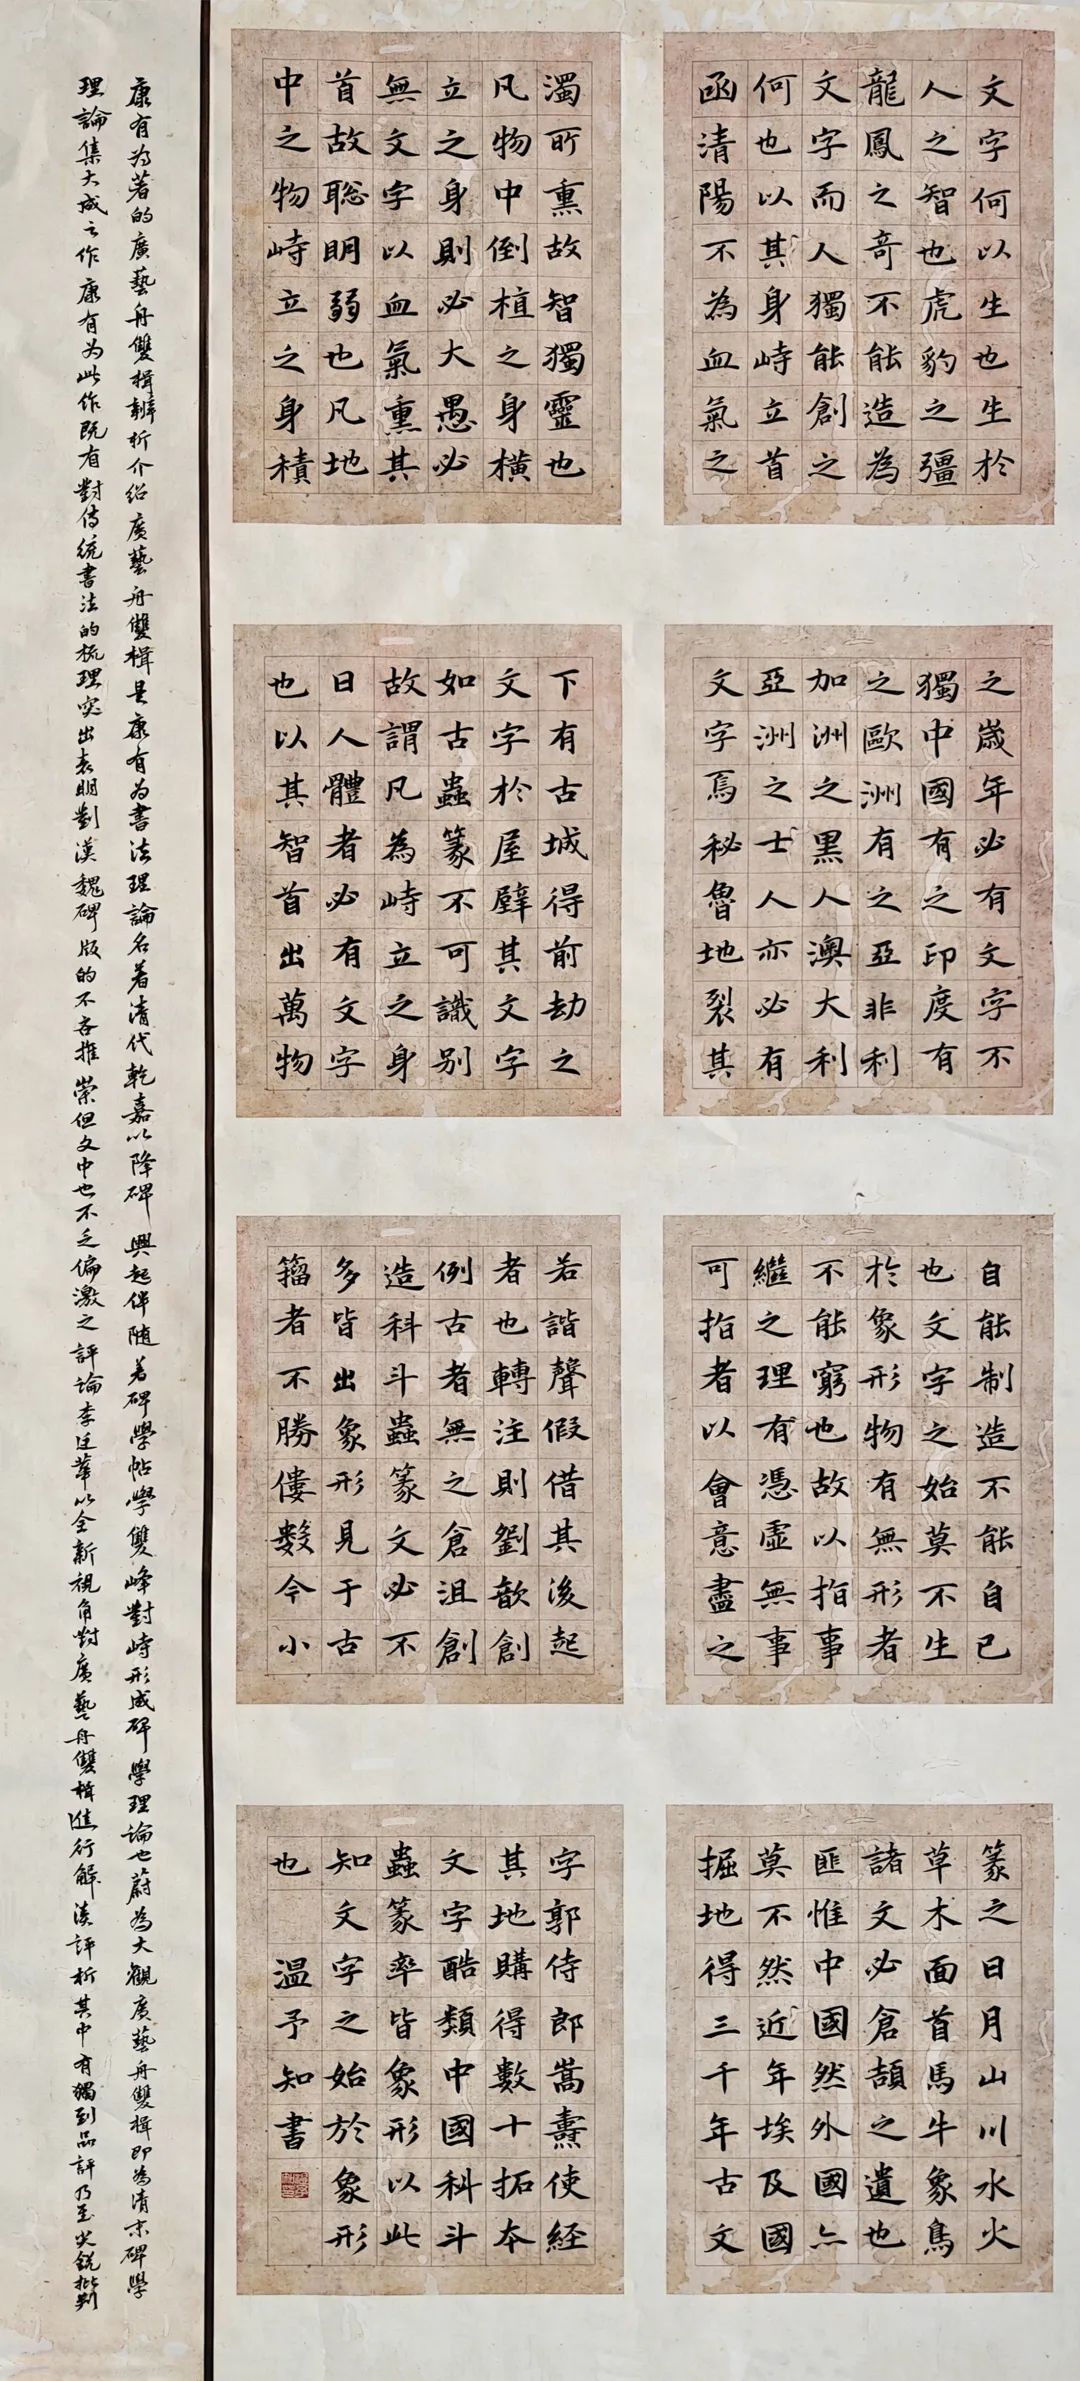 文字何以生也生於
人之智也虎豹之彊
龍鳳之奇不能造為
文字而人獨能創之
何也以其身峙立首
函清陽不為血氣之
濁所熏故智獨靈也
凡物中倒植之身橫
立之身則必大愚必
無文字以血氣熏其
首故聡明弱也凡地
中之物峙立之身積
之歲年必有文字不
獨中國有之印度有
之歐洲有之亞非利
加洲之黑人澳大利
亞洲之士人亦必有
文字焉秘魯地裂其
下有古城得前劫之
文字於屋壁其文字
如古蟲篆不可識别
故謂凡為峙立之身
日人體者必有文字
也以其智首出萬物
自能制造不能自已
也文字之始莫不生
於象形物有無形者
不能窮也故以指事
繼之理有憑虛無事
可指者以會意盡之
若諧聲假借其後起
者也轉注則劉歆創
例古者無之倉沮創
造科斗蟲篆文必不
多皆出象形見于古
籀者不勝僂數今小
篆之日月山川水火
草木面首馬牛象鳥
諸文必倉頡之遺也
匪惟中國然外國亦
莫不然近年埃及國
掘地得三千年古文
字郭侍郎嵩燾使經
其地購得數十拓本
文字酷類中國科斗
蟲篆率皆象形以此
知文字之始於象形
也 温予知書
康有為著的廣藝舟雙楫辨析介紹廣藝舟雙楫是康有為書法理論名著清代乾嘉以降碑興起伴随着碑學帖學雙峰對峙形成碑學理論也蔚為大觀廣藝舟雙楫即為清末碑學
理論集大成之作康有為此作既有對傳統書法的梳理突出表明對漢魏碑版的不吝推崇但文中也不乏偏激之評論李廷華以全新視角對廣藝舟雙楫進行解讀評析其中有獨到品評乃至尖銳批判